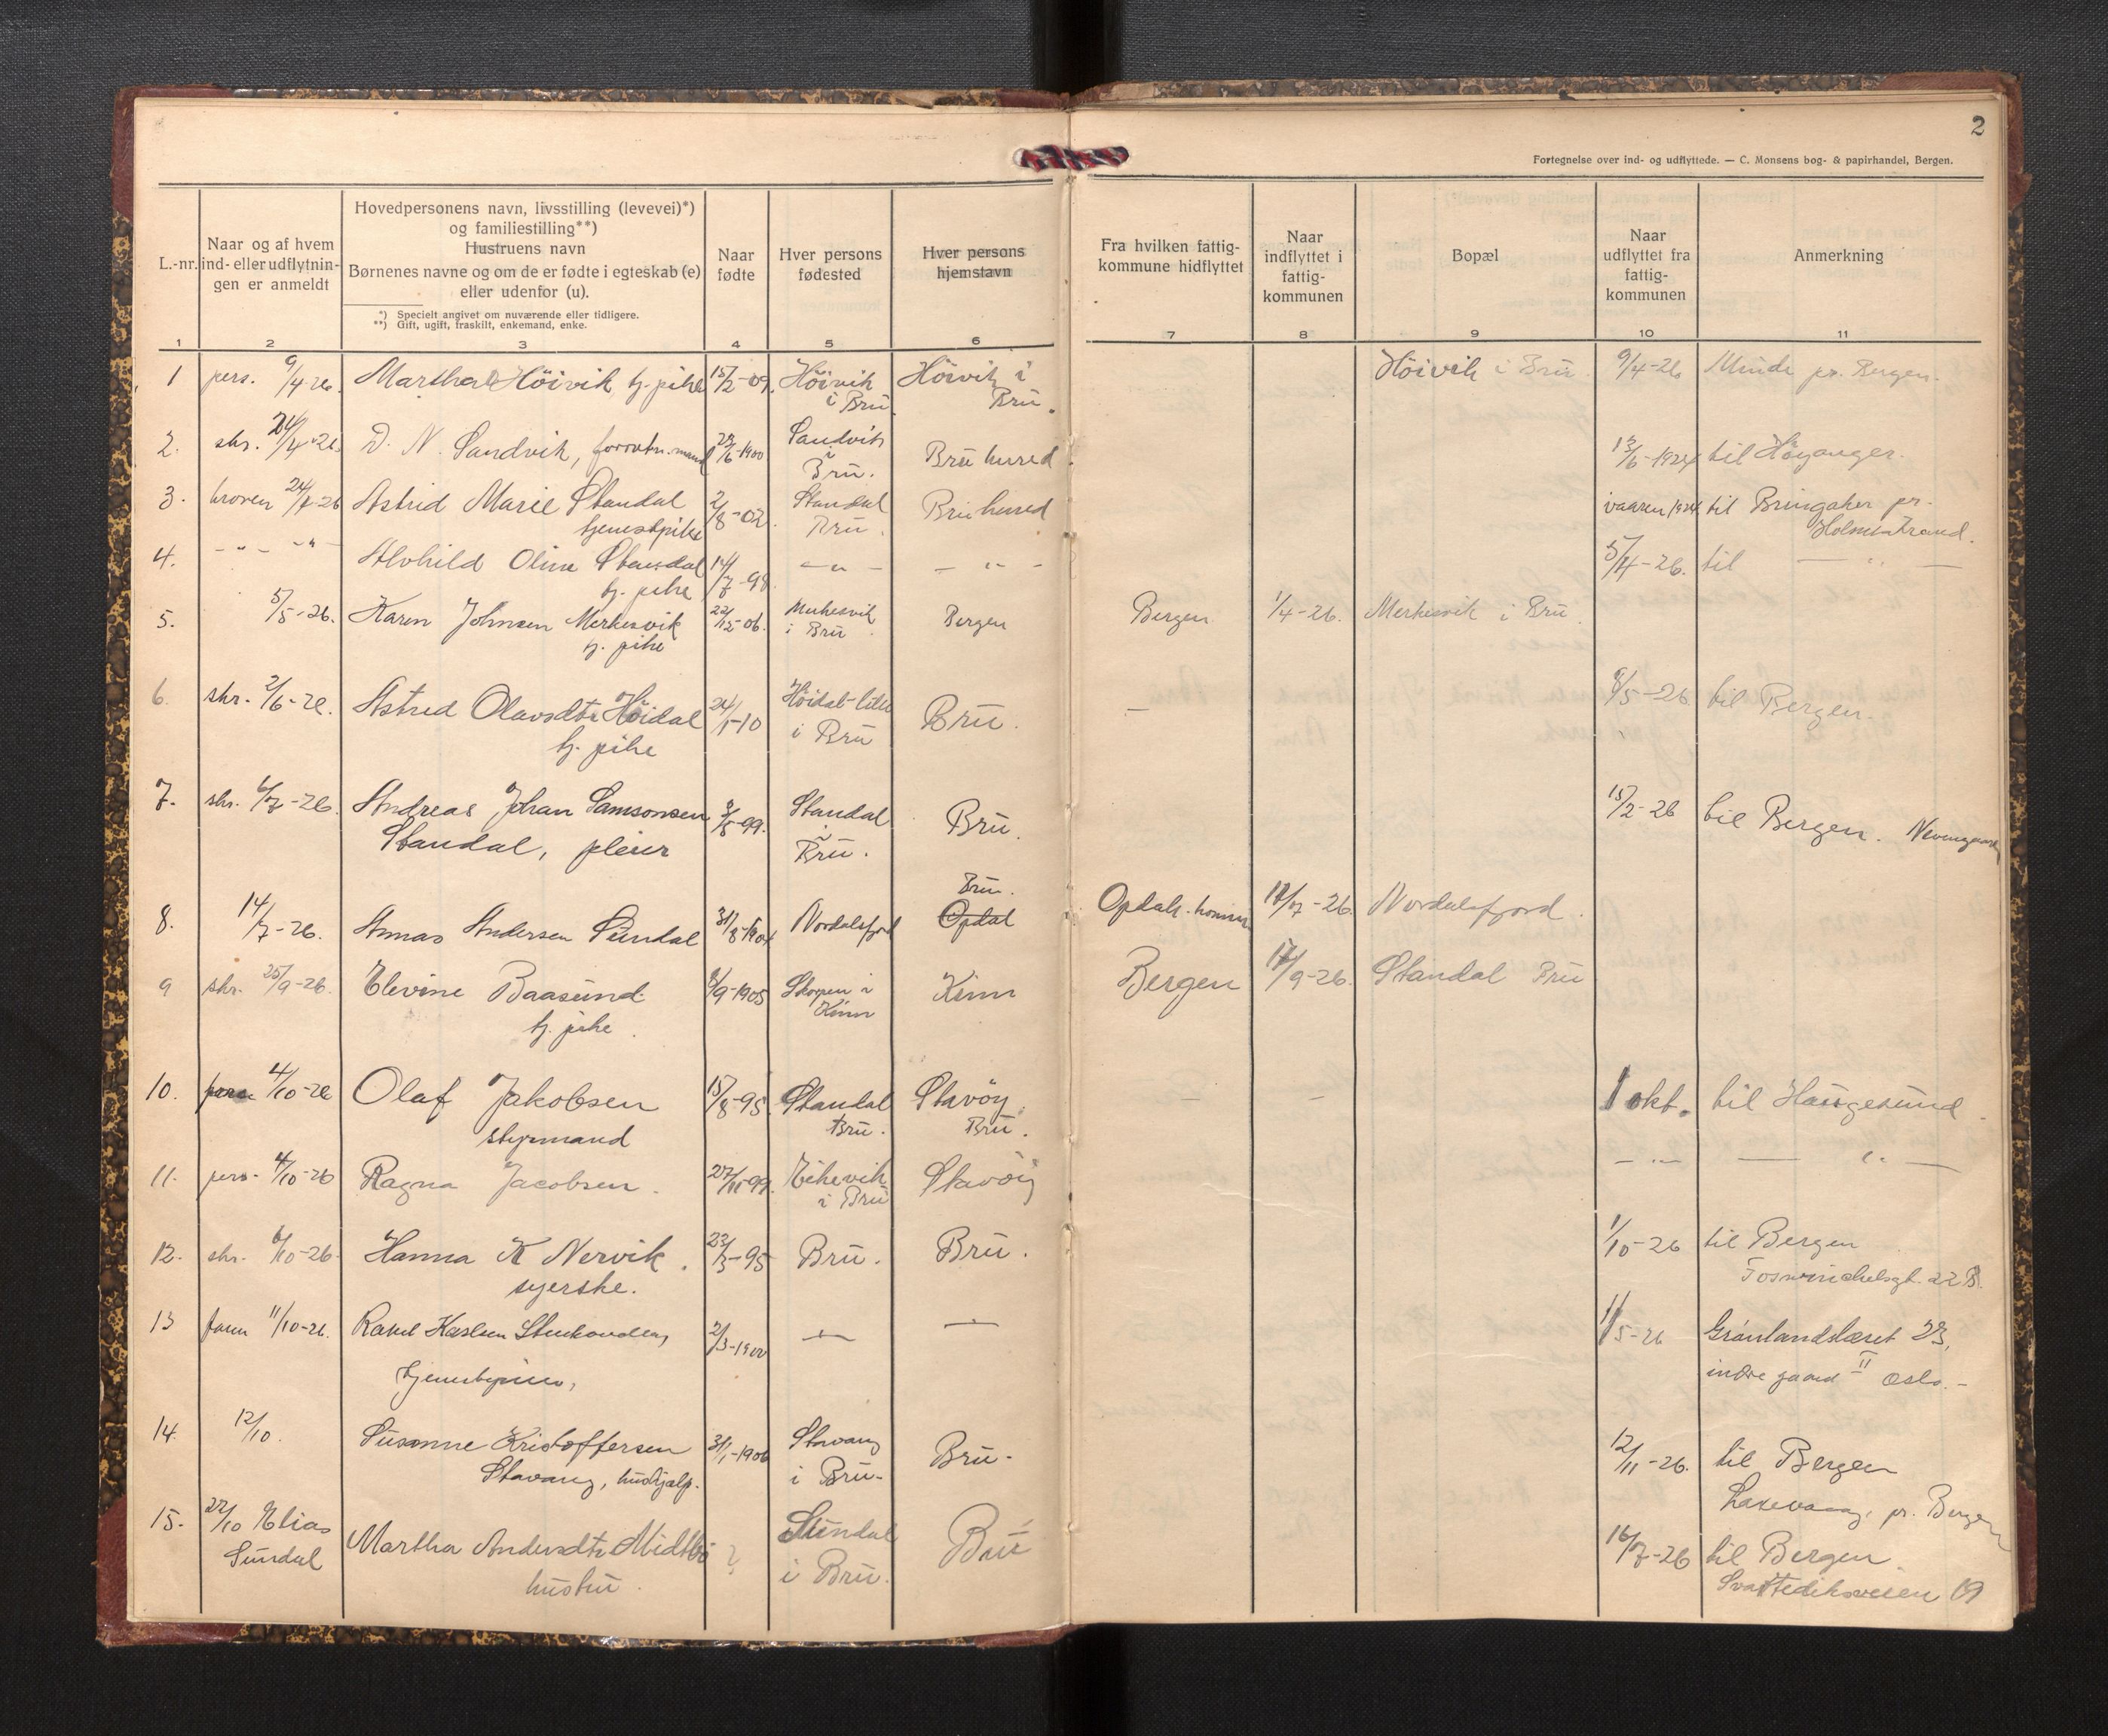 2
Fortegnelse over ind- og udflyttede. — C. Monsens bog- & papirhandel, Bergen.
L.-nr.
Naar og af hvem
ind- eller udflytnin-
gen er anmeldt
Hovedpersonens navn, livsstilling (levevei)*)
og familiestilling**)
Hustruens navn
Børnenes navne og om de er fødte i egteskab (e)
eller udenfor (u).
*) Specielt angivet om nuværende eller tidligere.
**) Gift, ugift, fraskilt, enkemand, enke.
Naar
fødte
Hver persons
fødested
Hver persons
hjemstavn
Fra hvilken fattig-
kommune hidflyttet
Naar
indflyttet i
fattig-
kommunen
Bopæl
Naar
udflyttet fra
fattig-
kommunen
Anmerkning
1 2 3 4 5 6 7 8 9 10 11
1 pers. 9/4-26. Martha Höivik tj. pike 15/2-09. Höivik Höivik i Höivik i Brü. 9/4-26 Minde pr. Bergen.
i Brü. Brü.
2. skr. 24/4-26. D. N. Sandvik, 23/6-1900 Sandvik Brü herred 13/6-1924 til Höyanger.
i
Brü.
3. 24/4-26 Astrid Marie Standal 2/8-02. Standal Brü herred vaaren 1924 til Bringaker pr.
tjenestpike Brü. Holmestrand.
4. - " - - " - Alvhild Oline Standal 14/7-98 - " - - " - 5/4-26. til - " -
tj. pike
5. 5/5-26. Karen Johnsen Merkesvik 22/12-06. Merkesvik Bergen Bergen 1/4-26. Merkesvik i Brü.
tj. pike i Brü.
6. skr. 2/6-26. Astrid Olavsdtr Höidal 24/1-10 Höidal-lille Brü. — 8/5-26. til Bergen.
tj. pike i Brü
7. skr. 6/7-26. Andreas Johan Samsonsen 3/5-99. Standal Brü. 15/2-26 til Bergen.
Standal, pleier i
Brü.
8. 14/7-26. Annas Andersen Sündal 31/8-1904 Nordalsfjord Brü.
Opdal 12/7-26. Nordalsfjord.
9 skr. 25/9-26. Elevine Baasünd. 8/9-1905 Skorpen i Kinn Bergen 17/9-26. Standal Brü
tj. pike. Kinn
10. pers 4/10-26 Olaf Jakobsen 15/8-95 Standal Stavöy — — 1 okt. til Haügesünd.
styrmand Brü. Brü.
11. pers. 4/10-26 Ragna Jacobsen. 27/11-99. Eikevik Stavöy - " - — " —
i Brü
12. skr. 6/10-26. Hanna K Nervik. 23/3-95 Brü. Brü. 1/10-26 til Bergen
syerske.
13 11/10-26. Rakel Karlsen 2/3-1900 — — 1/5-26 Grønlandslæret 23,
indre gaard II Oslo.-
14. 12/10. Süsanne Kristoffersen 31/1-1906 Stavang Brü- 12/11-26. til Bergen
Stavang, hüshjælp. i Brü- Laxevaag, pr. Bergen
15. 22/10 Elias Martha Andersdtr Midtbö ? Sündal Brü 16/7-26 til Bergen.
Sündal hüstrü. i Brü. Svartediksveien 19